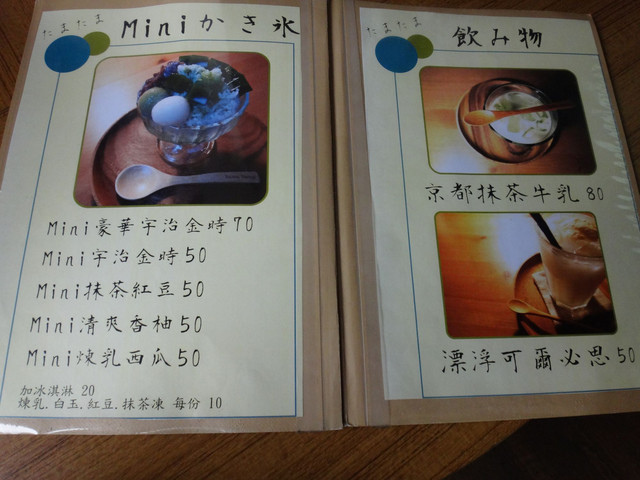 たまたま
Miniかき氷
Mini豪華宇治金時70
Mini宇治金時50
Mini抹茶紅豆50
Mini清爽香柚50
Mini煉乳西瓜50
加冰淇淋 20
煉乳.白玉.紅豆.抹茶凍 每份 10
たまたま
飲み物
京都抹茶牛乳80
漂浮可爾必思50